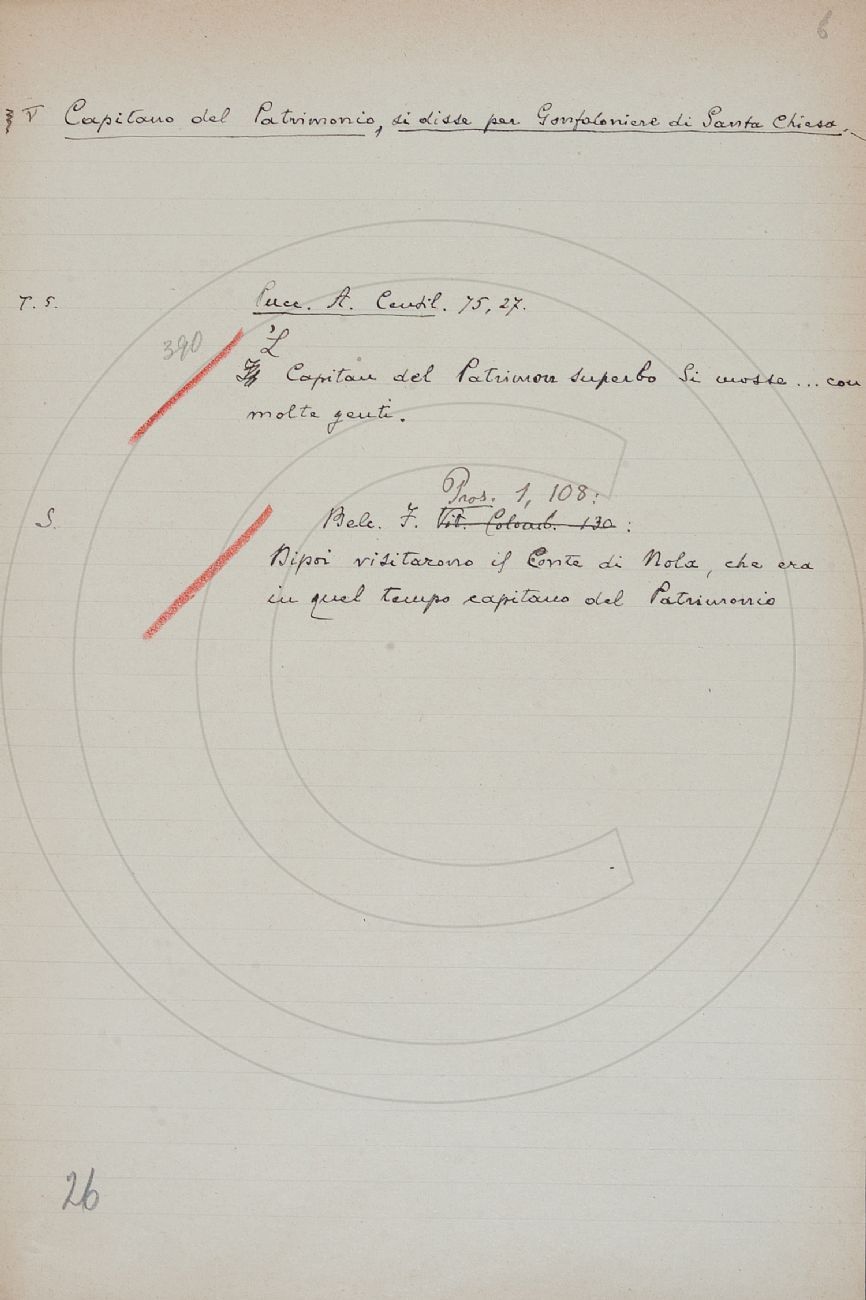 6
§ V Capitano del Patrimonio, si disse per Gonfaloniere di Santa Chiesa.
T. S. Pucc. A. Centil. 75, 27.
390 'L
Capitan del Patrimon superbo Si mosse ... con
molte genti.
Pros. 1, 108:
S. Belc. F. Vit. Colomb. 130 :
Dipoi visitarono il Conte di Nola, che era
in quel tempo capitano del Patrimonio
26